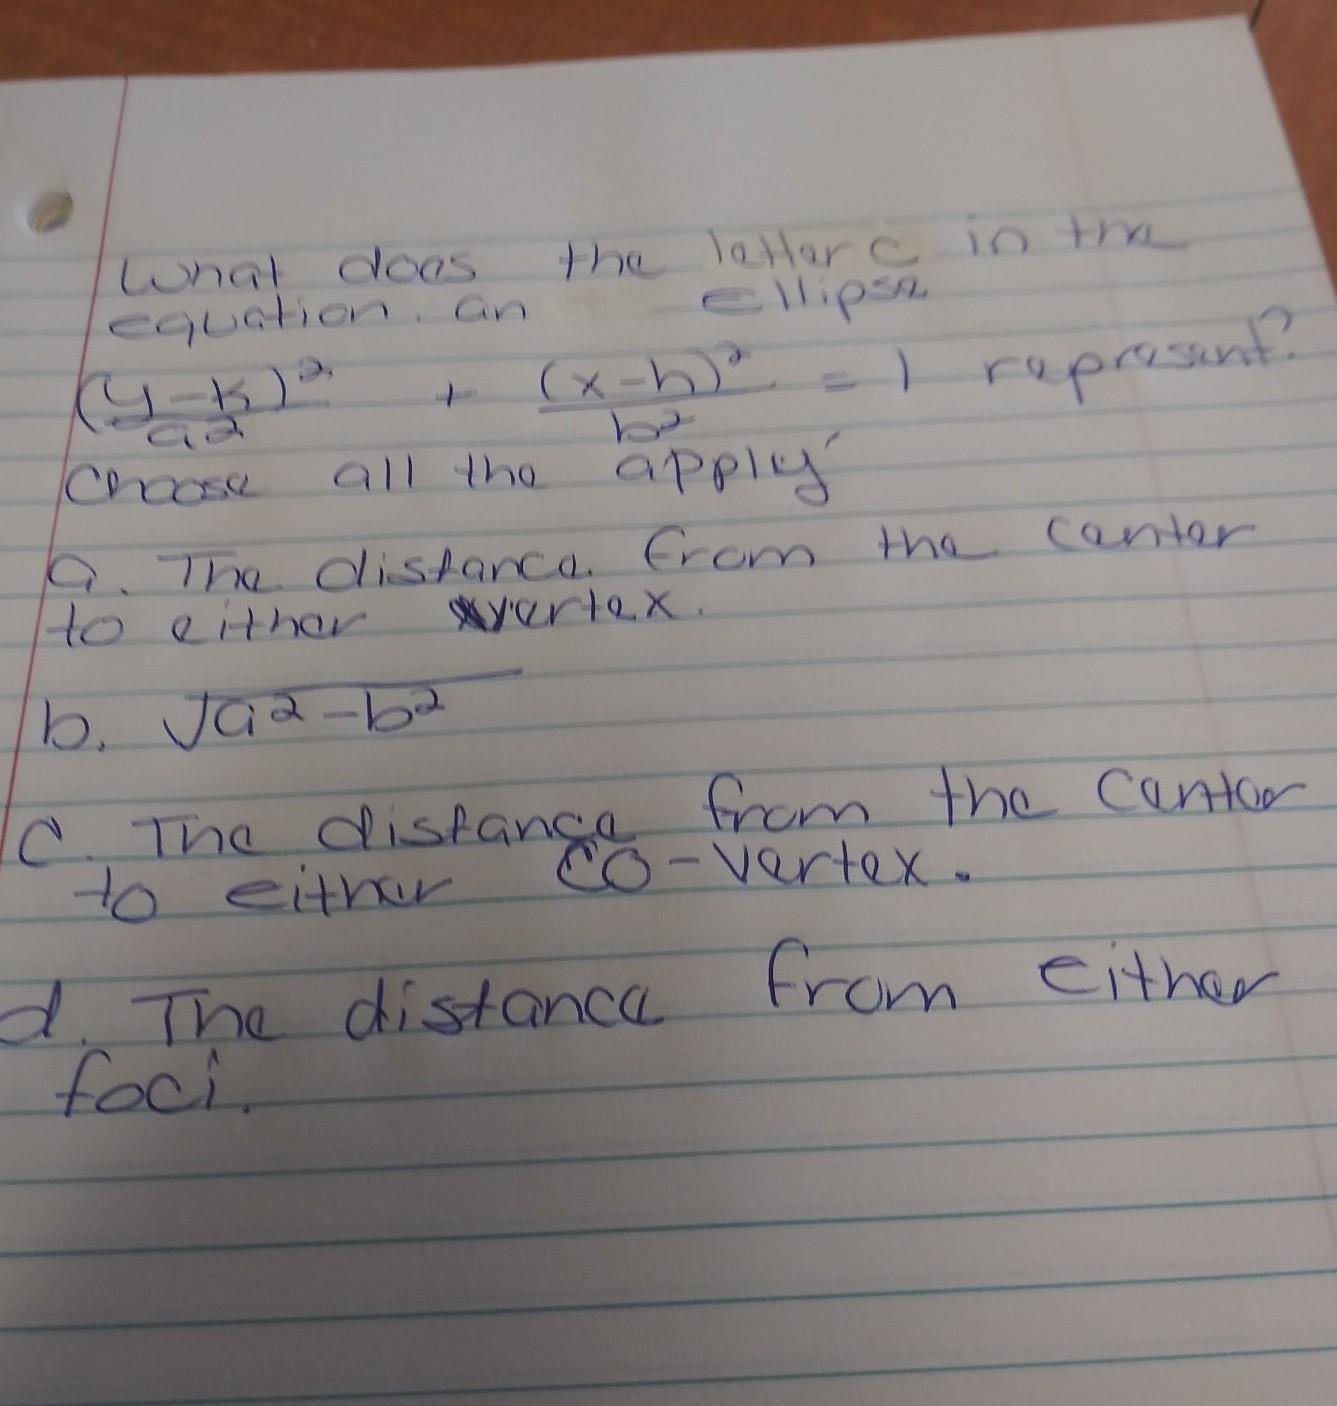 What does the letter c in the
equation. an ellipse
(y-k)²/a² + (x-h)²/b² = 1 represent?
Choose all the apply
a. The distance from the center
to either vertex.
b. √a²-b²
c. The distance from the center
to either co-vertex.
d. The distance from either
foci.